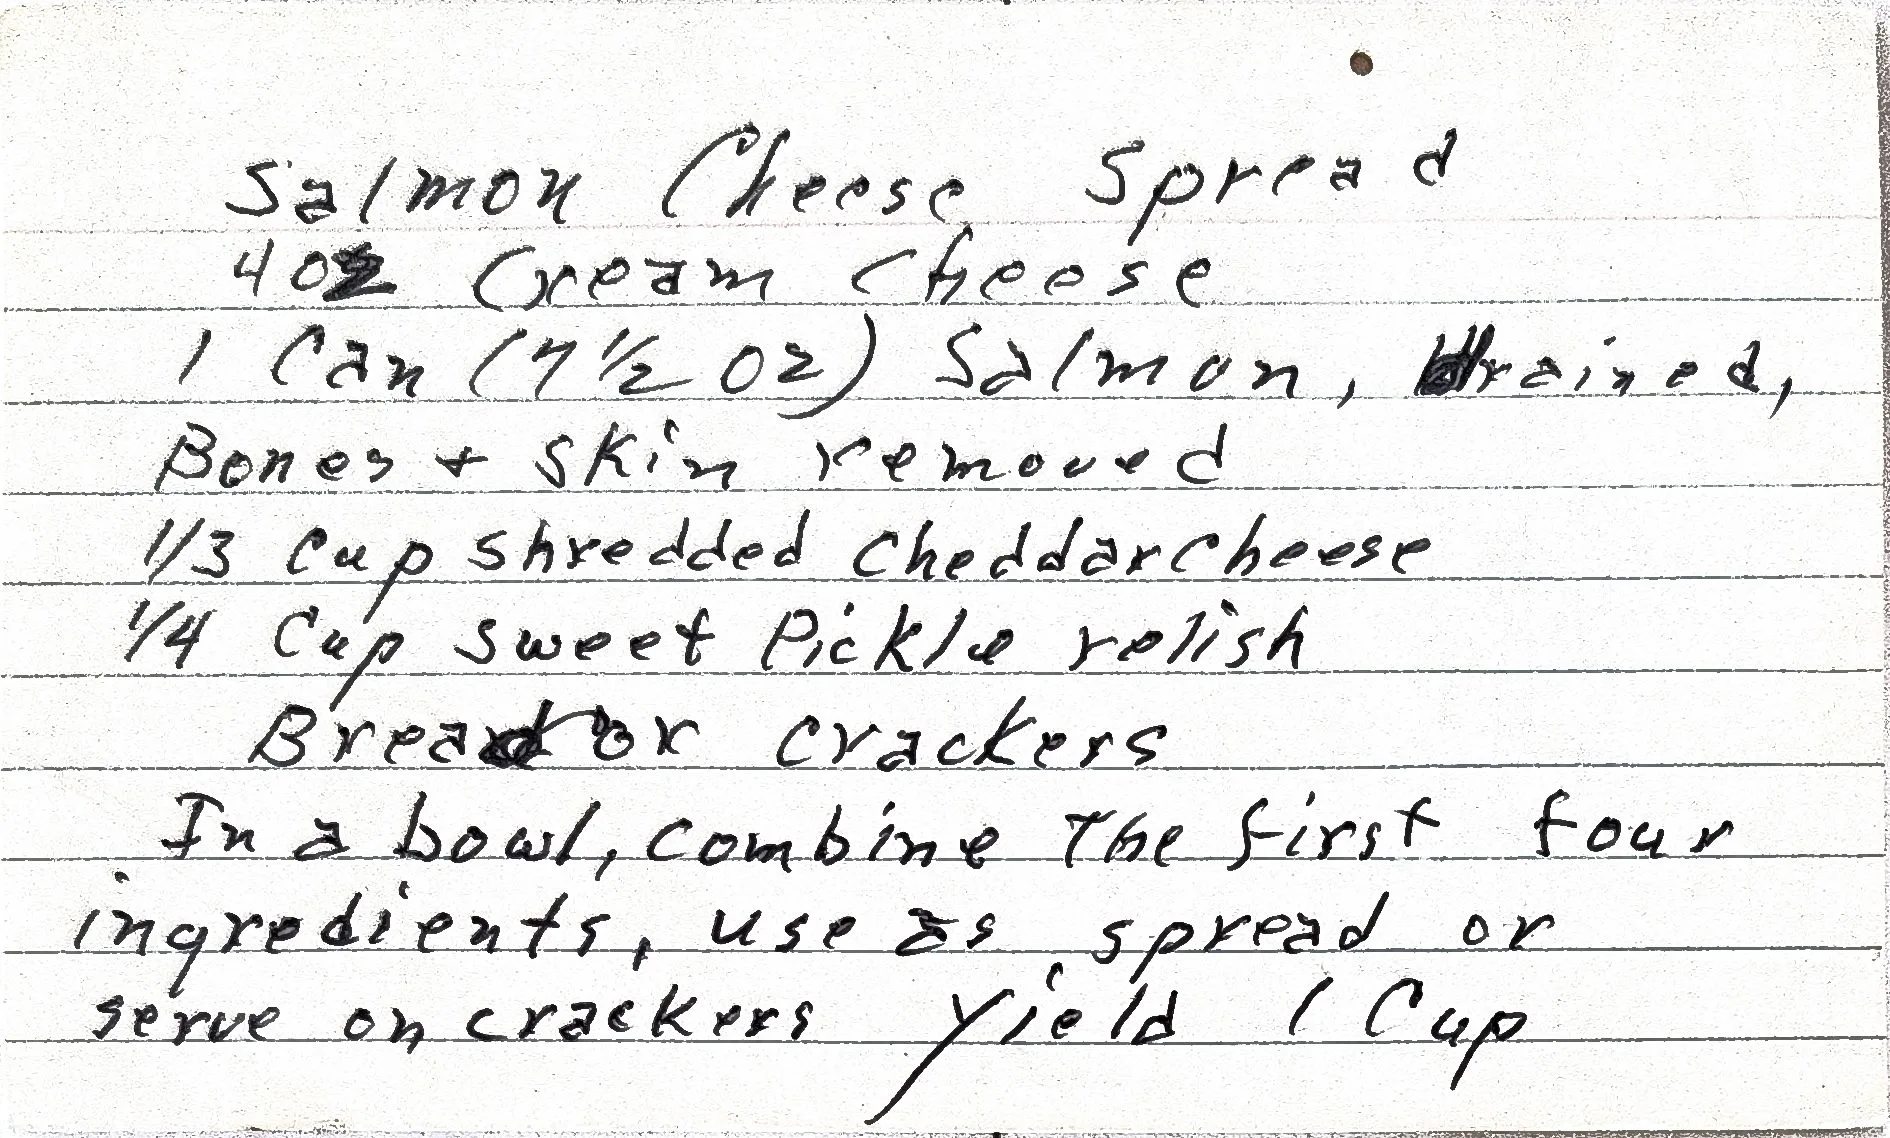 Salmon Cheese Spread
4 oz Cream Cheese
1 Can (7 1/2 oz) Salmon, drained,
Bones + skin removed
1/3 Cup shredded cheddar cheese
1/4 Cup sweet Pickle relish
Bread or crackers
In a bowl, combine The first four
ingredients, use as spread or
serve on crackers Yield 1 Cup